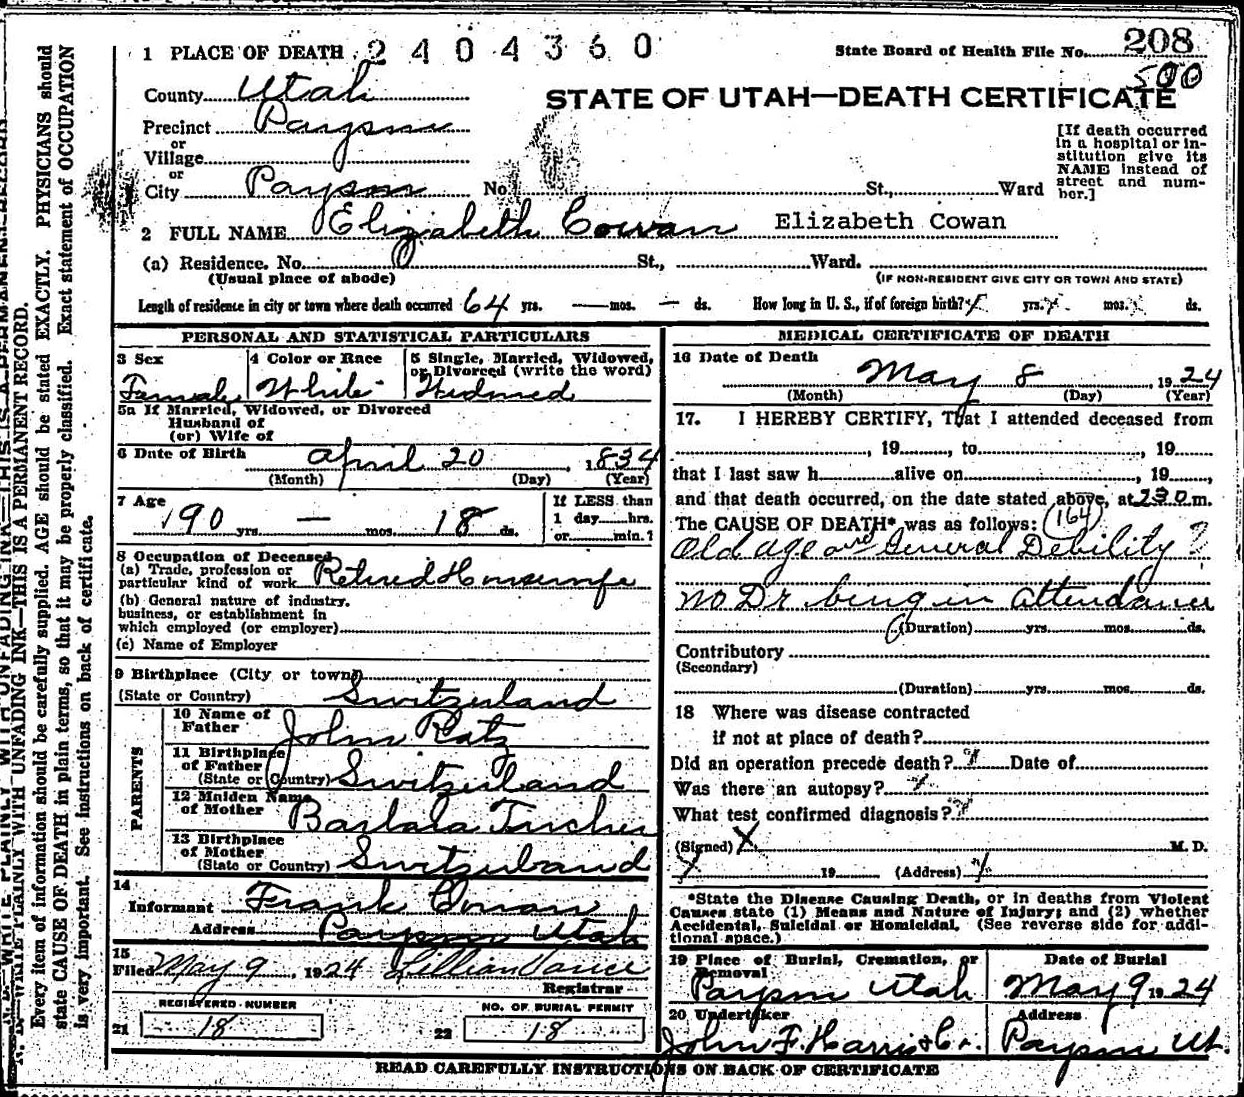 1 PLACE OF DEATH 2 4 0 4 3 6 0
State Board of Health File No. 208
500
County Utah
STATE OF UTAH—DEATH CERTIFICATE
Precinct Payson
or
Village
or
City Payson No. St., Ward
[If death occurred in a hospital or institution give its NAME instead of street and number.]
2 FULL NAME Elizabeth Cowan Elizabeth Cowan
(a) Residence. No. St., Ward.
(Usual place of abode) (IF NON-RESIDENT GIVE CITY OR TOWN AND STATE)
Length of residence in city or town where death occurred 64 yrs. — mos. — ds. How long in U. S., if of foreign birth? yrs. mos. ds.
PERSONAL AND STATISTICAL PARTICULARS
3 Sex
Female
4 Color or Race
White
5 Single, Married, Widowed,
or Divorced (write the word)
Widowed
5a If Married, Widowed, or Divorced
Husband of
(or) Wife of
6 Date of Birth April 20, 1834
(Month) (Day) (Year)
7 Age
90 yrs. — mos. 18 ds.
If LESS than
1 day hrs.
or min.?
8 Occupation of Deceased
(a) Trade, profession or
particular kind of work Retired Housewife
(b) General nature of industry,
business, or establishment in
which employed (or employer)
(c) Name of Employer
9 Birthplace (City or town)
(State or Country) Switzerland
PARENTS
10 Name of
Father John Ratz
11 Birthplace
of Father
(State or Country) Switzerland
12 Maiden Name
of Mother Barbara
13 Birthplace
of Mother
(State or Country) Switzerland
14
Informant Frank Cowan
Address Payson Utah
15
Filed May 9, 1924 Lillian Vance
Registrar
REGISTERED NUMBER
21 18
NO. OF BURIAL PERMIT
22 18
MEDICAL CERTIFICATE OF DEATH
16 Date of Death
May 8 1924
(Month) (Day) (Year)
17. I HEREBY CERTIFY, That I attended deceased from
, 19 , to , 19
that I last saw h alive on , 19 ,
and that death occurred, on the date stated above, at 230 m.
The CAUSE OF DEATH* was as follows: 164
Old age and General Debility?
no Dr being in attendance
(Duration) yrs. mos. ds.
Contributory
(Secondary)
(Duration) yrs. mos. ds.
18 Where was disease contracted
if not at place of death?
Did an operation precede death? Date of
Was there an autopsy?
What test confirmed diagnosis?
(Signed) X M. D.
19 (Address)
*State the Disease Causing Death, or in deaths from Violent
Causes state (1) Means and Nature of Injury; and (2) whether
Accidental, Suicidal or Homicidal. (See reverse side for addi-
tional space.)
19 Place of Burial, Cremation, or
Removal
Payson Utah
Date of Burial
May 9 1924
20 Undertaker
John F. Harris & Co.
Address
Payson Ut.
READ CAREFULLY INSTRUCTIONS ON BACK OF CERTIFICATE
N. B.—WRITE PLAINLY WITH UNFADING INK—THIS IS A PERMANENT RECORD.
Every item of information should be carefully supplied. AGE should be stated EXACTLY. PHYSICIANS should
state CAUSE OF DEATH in plain terms, so that it may be properly classified. Exact statement of OCCUPATION
is very important. See instructions on back of certificate.